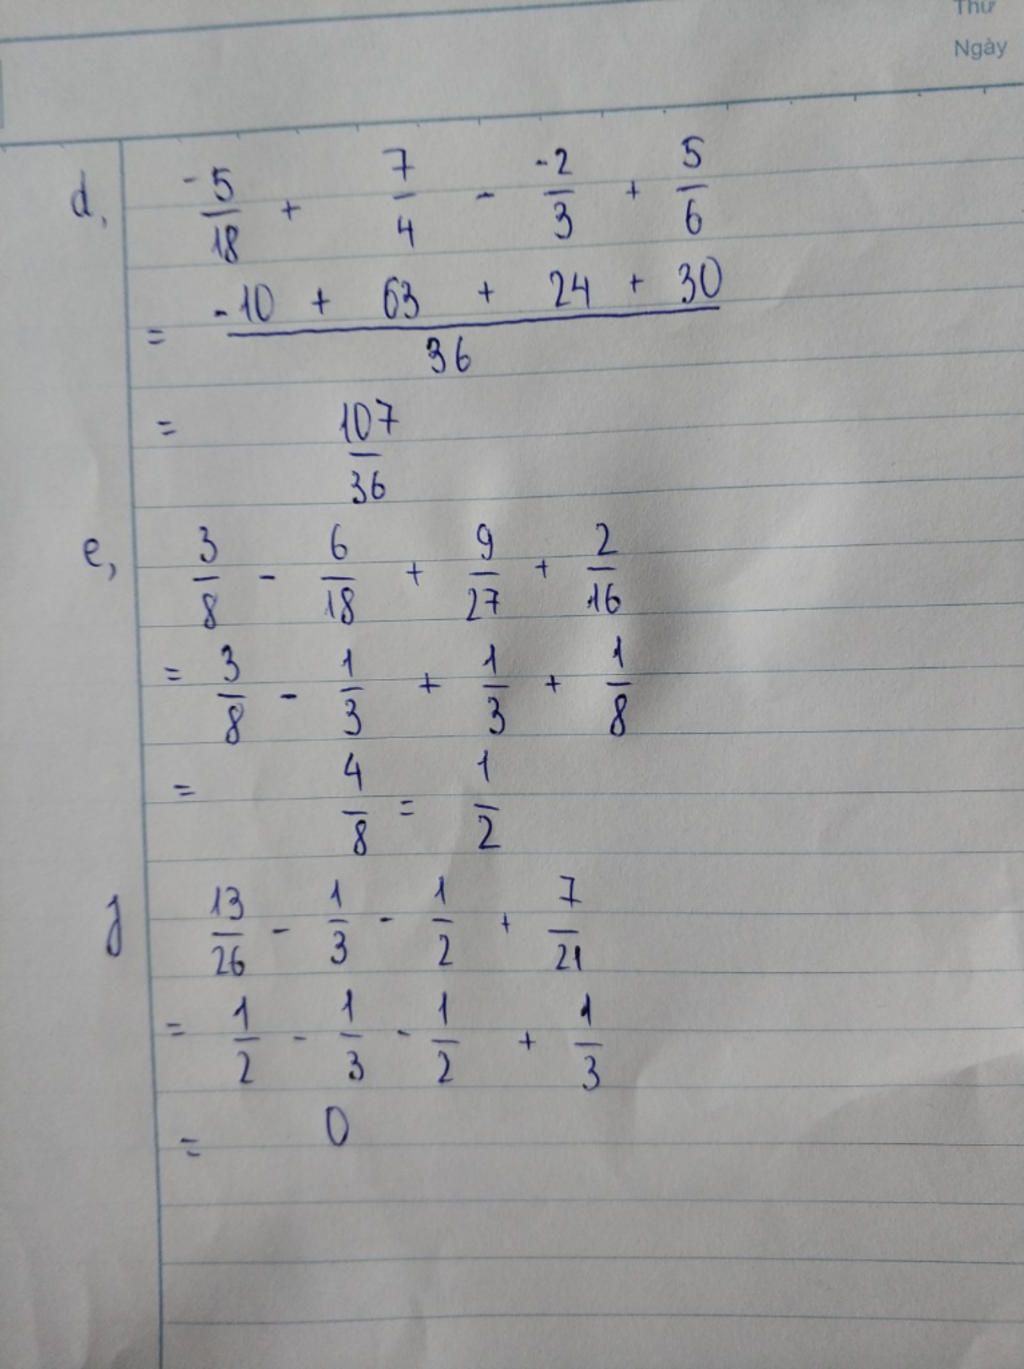 Thứ
Ngày
d, -5/18 + 7/4 - -2/3 + 5/6
= (-10 + 63 + 24 + 30)/36
= 107/36
e, 3/8 - 6/18 + 9/27 + 2/16
= 3/8 - 1/3 + 1/3 + 1/8
= 4/8 = 1/2
f 13/26 - 1/3 - 1/2 + 7/21
= 1/2 - 1/3 - 1/2 + 1/3
= 0